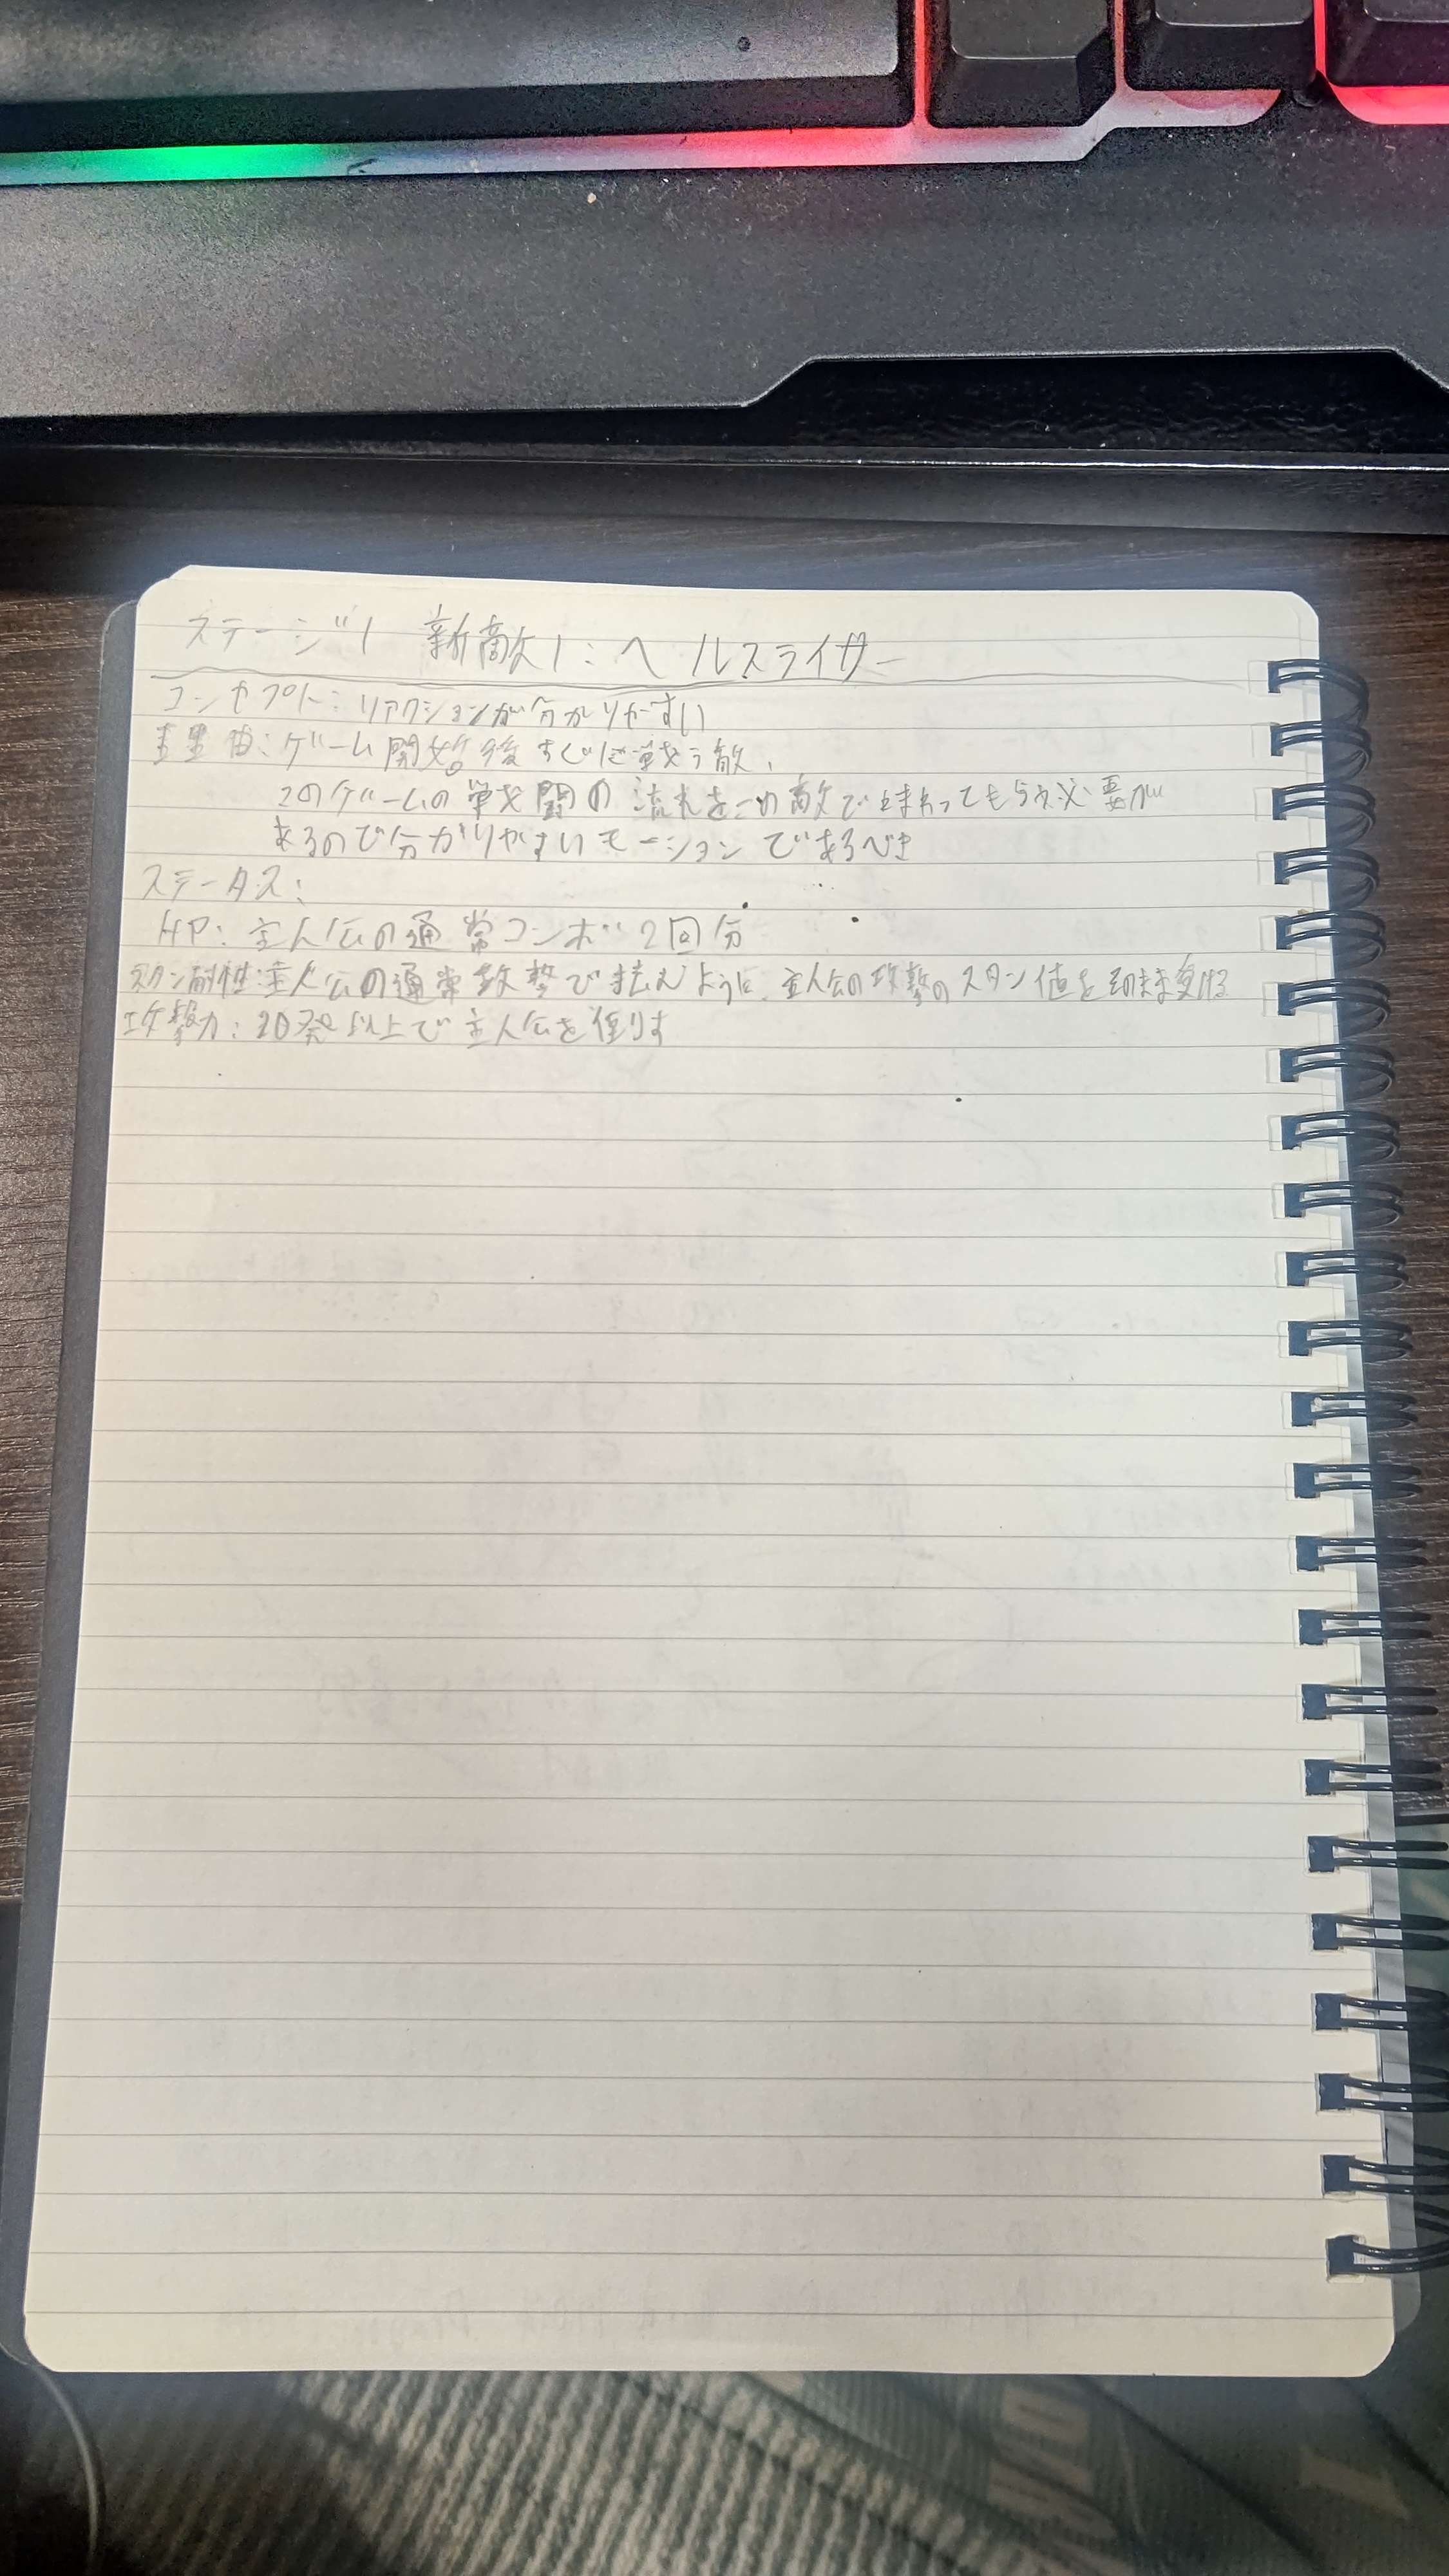 ステージ1 新敵1:ヘルスライサー
コンセプト:リアクションが分かりやすい
理由:ゲーム開始後すぐに戦う敵、
このゲームの戦闘の流れをこの敵で教わってもらう必要が
あるので分かりやすいモーションであるべき
ステータス:
HP:主人公の通常コンボ2回分
スタン耐性:主人公の通常攻撃で怯むように、主人公の攻撃のスタン値をそのまま受ける
攻撃力:20発以上で主人公を倒す